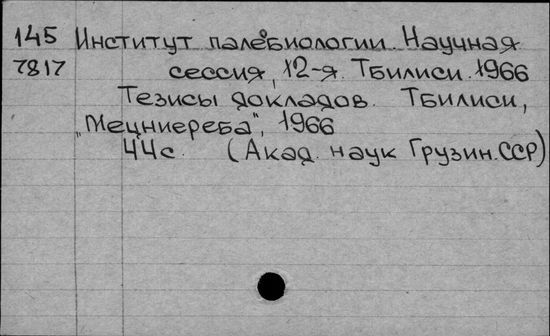 145 Институт палеобиологии. Научная
7817 сессия, 12-я. Тбилиси. 1966
Тезисы докладов. Тбилиси,
„Мецниереба", 1966
44с. (Акад. наук Грузин.ССР)